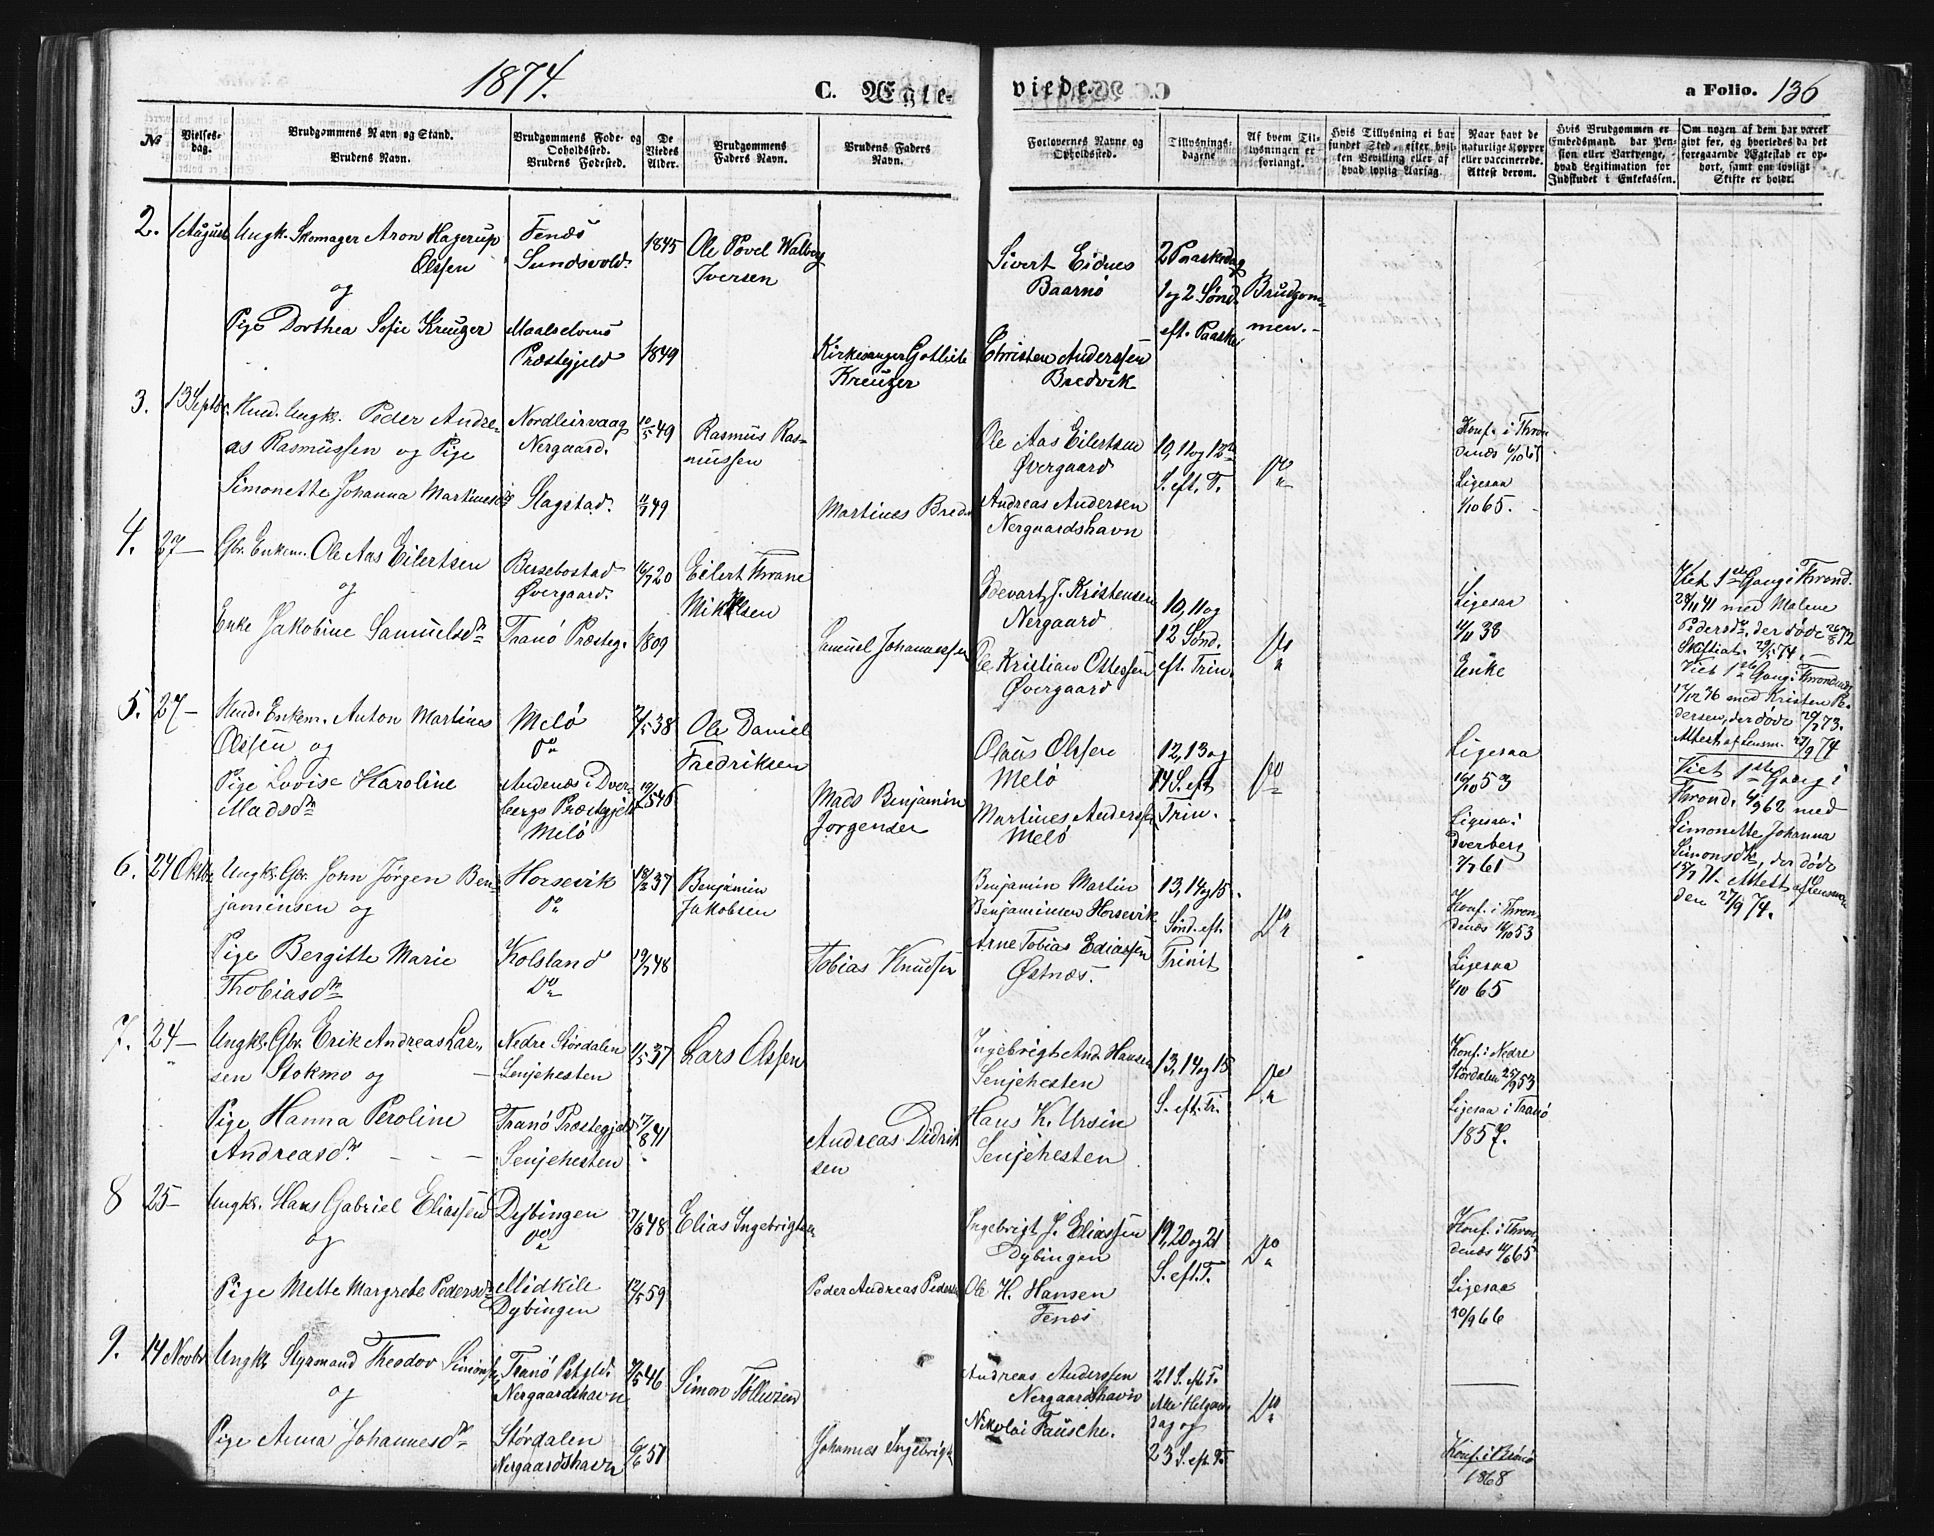 1874.
C. Ægte-
viede.
a Folio. 136
№
Vielses-
dag.
Brudgommens Navn og Stand.
Brudens Navn.
Brudgommens Føde- og
Opholdssted.
Brudens Fødested.
De
Viedes
Alder.
Brudgommens
Faders Navn.
Brudens Faders
Navn.
Forlovernes Navne og
Opholdssted.
Tillysnings-
dagene
Af hvem Til-
lysningen er
forlangt.
Hvis Tillysning ei har
fundet Sted, efter hvil-
ken Bevilling eller af
hvad lovlig Aarsag.
Naar havt de
naturlige Kopper
eller vaccinerede.
Attest derom.
Hvis Brudgommen er
Embedsmand, har Pen-
sion eller Vartpenge,
hvad Legitimation for
Indskudet i Enkekassen.
Om nogen af dem har været
givt før, og hvorledes da det
foregaaende Ægteskab er op-
hørt, samt om lovligt
Skifte er holdt.
2. 1 August Ungk. Skomager Aron Hagerup
Olssen
og
Pige Dorthea Sofie Kreuzer
Fenæs
Sundsvold.
Maalselvens
Præstegjeld
1845
1849
Ole Povel Walberg
Iversen
Kirkesanger Gotlieb
Kreuzer
Sivert Eidnes
Baarnø
Christen Anderssen
Bredvik
2 Paaskedag
1 og 2 Sønd.
eft. Paaske
Brudgom-
men.
3. 13 Septbr. Huusm. Ungk. Peder Andre-
as Rasmussen og Pige
Simonette Johanna Martinesd.
Nordleirvaag
Nergaard.
Slagstad.
10/5 49
11/7 49
Rasmus Ras-
mussen
Martines Bredes.
Ole Aas Eilertsen
Øvergaard
Andreas Andersen
Nergaardshavn
10, 11 og 12te
S. eft. T.
Do
Konf. i Thron
denæs 6/10 67
Ligesaa
1/10 65.
4. 27 — Gbr. Enkem. Ole Aas Eilertsen
og
Enke Jakobine Samuelsdtr
Bersebostad
Øvergaard.
Tranø Præsteg.
16/7 20
1809
Eilert Thrane
Mikkelsen
Samuel Johannessen
Edevart J. Kristensen
Nergaard
Ole Kristian Ottessen
Øvergaard
10, 11 og
12 Sønd.
eft. Trin.
Do
Ligesaa
11/11 38
Enke
Viet 1ste Gang i Thrond.
28/11 41 med Malene
Pedersdtr. der døde 26/8 72
Skifteat. 29/5 74.
Viet 1ste Gang i Throndenæs
17/12 36 med Kristen Pe-
dersen, der døde 20/7 73.
Attest af Lensm. 23/9 74
5. 27 — Huusm. Enkem. Anton Martines
Olssen og
Pige Lovise Karoline
Madsdtr
Melø
Do
Andenæs i Dver-
bergs Præstegjeld
Melø
7/5 38
19/2 46
Ole Daniel
Fredriksen
Mads Benjamin
Jørgensen
Olaus Olssen
Melø
Martines Anderssen
Melø
12, 13 og
14 S. eft.
Trin.
Do
Ligesaa
16/10 53
Ligesaa i
Dverberg
7/7 61
Viet 1ste Gang i
Thrond. 4/9 62 med
Simonette Johanna
Simonsdtr, der døde
15/7 71. Attest af Lensman
den 27/9 74.
6. 24 Oktbr Ungk. Gbr. John Jørgen Ben-
jaminsen og
Pige Bergitte Marie
Thobiasdtr
Horsevik
Do
Kolsland
Do
18/2 37
19/7 48
Benjamin
Jakobsen
Tobias Knudsen
Benjamin Martin
Benjaminsen Horsevik
Arne Tobias Ediassen
Østnæs.
13, 14 og 15
Sønd. eft.
Trinit
Do
Konf. i Thron-
denæs 16/10 53
Ligesaa
1/10 65
7. 24 — Ungk. Gbr. Erik Andreas Lar-
sen Stokmo og
Pige Hanna Peroline
Andreasdtr.
Nedre Størdalen
Senjehesten
Tranø Præstegjeld
Senjehesten
11/5 37
17/8 41
Lars Olssen
Andreas Didrik
sen
Ingebrigt And. Hansen
Senjehesten
Hans K. Ursin
Senjehesten
13, 14 og 15
S. eft. Tr.
Do
Konf. i Nedre
Størdalen 25/9 53
Ligesaa i Tranø
1857.
8 25 — Ungk. Hans Gabriel Eliassen
og
Pige Mette Margrete Pedersdtr
Dybingen
Do
Midkile
Dybingen
7/10 48
12/5 59
Elias Ingebrigtsen
Peder Andreas Pedersen
Ingebrigt J. Eliassen
Dybingen
Ole H. Hansen
Fenæs
19, 20 og 21
S. eft. T.
Do
Konf. i Thron
denæs 11/6 65
Ligesaa
30/9 66
9. 14 Novbr Ungk. Styrmand Theodor Simonsen
og
Pige Anna Johannesdtr
Tranø Pstgld.
Nergaardshavn
Størdalen
Nergaardshavn
7/5 46
6/6 51
Simon Tollevsen
Johannes Ingebrigts.
Andreas Anderssen
Nergaardshavn
Nikolai Fausche.
21 S. eft T.
Alle Helgens
dag og
23 S. eft. T.
Do
Konf. i Brønø
1868